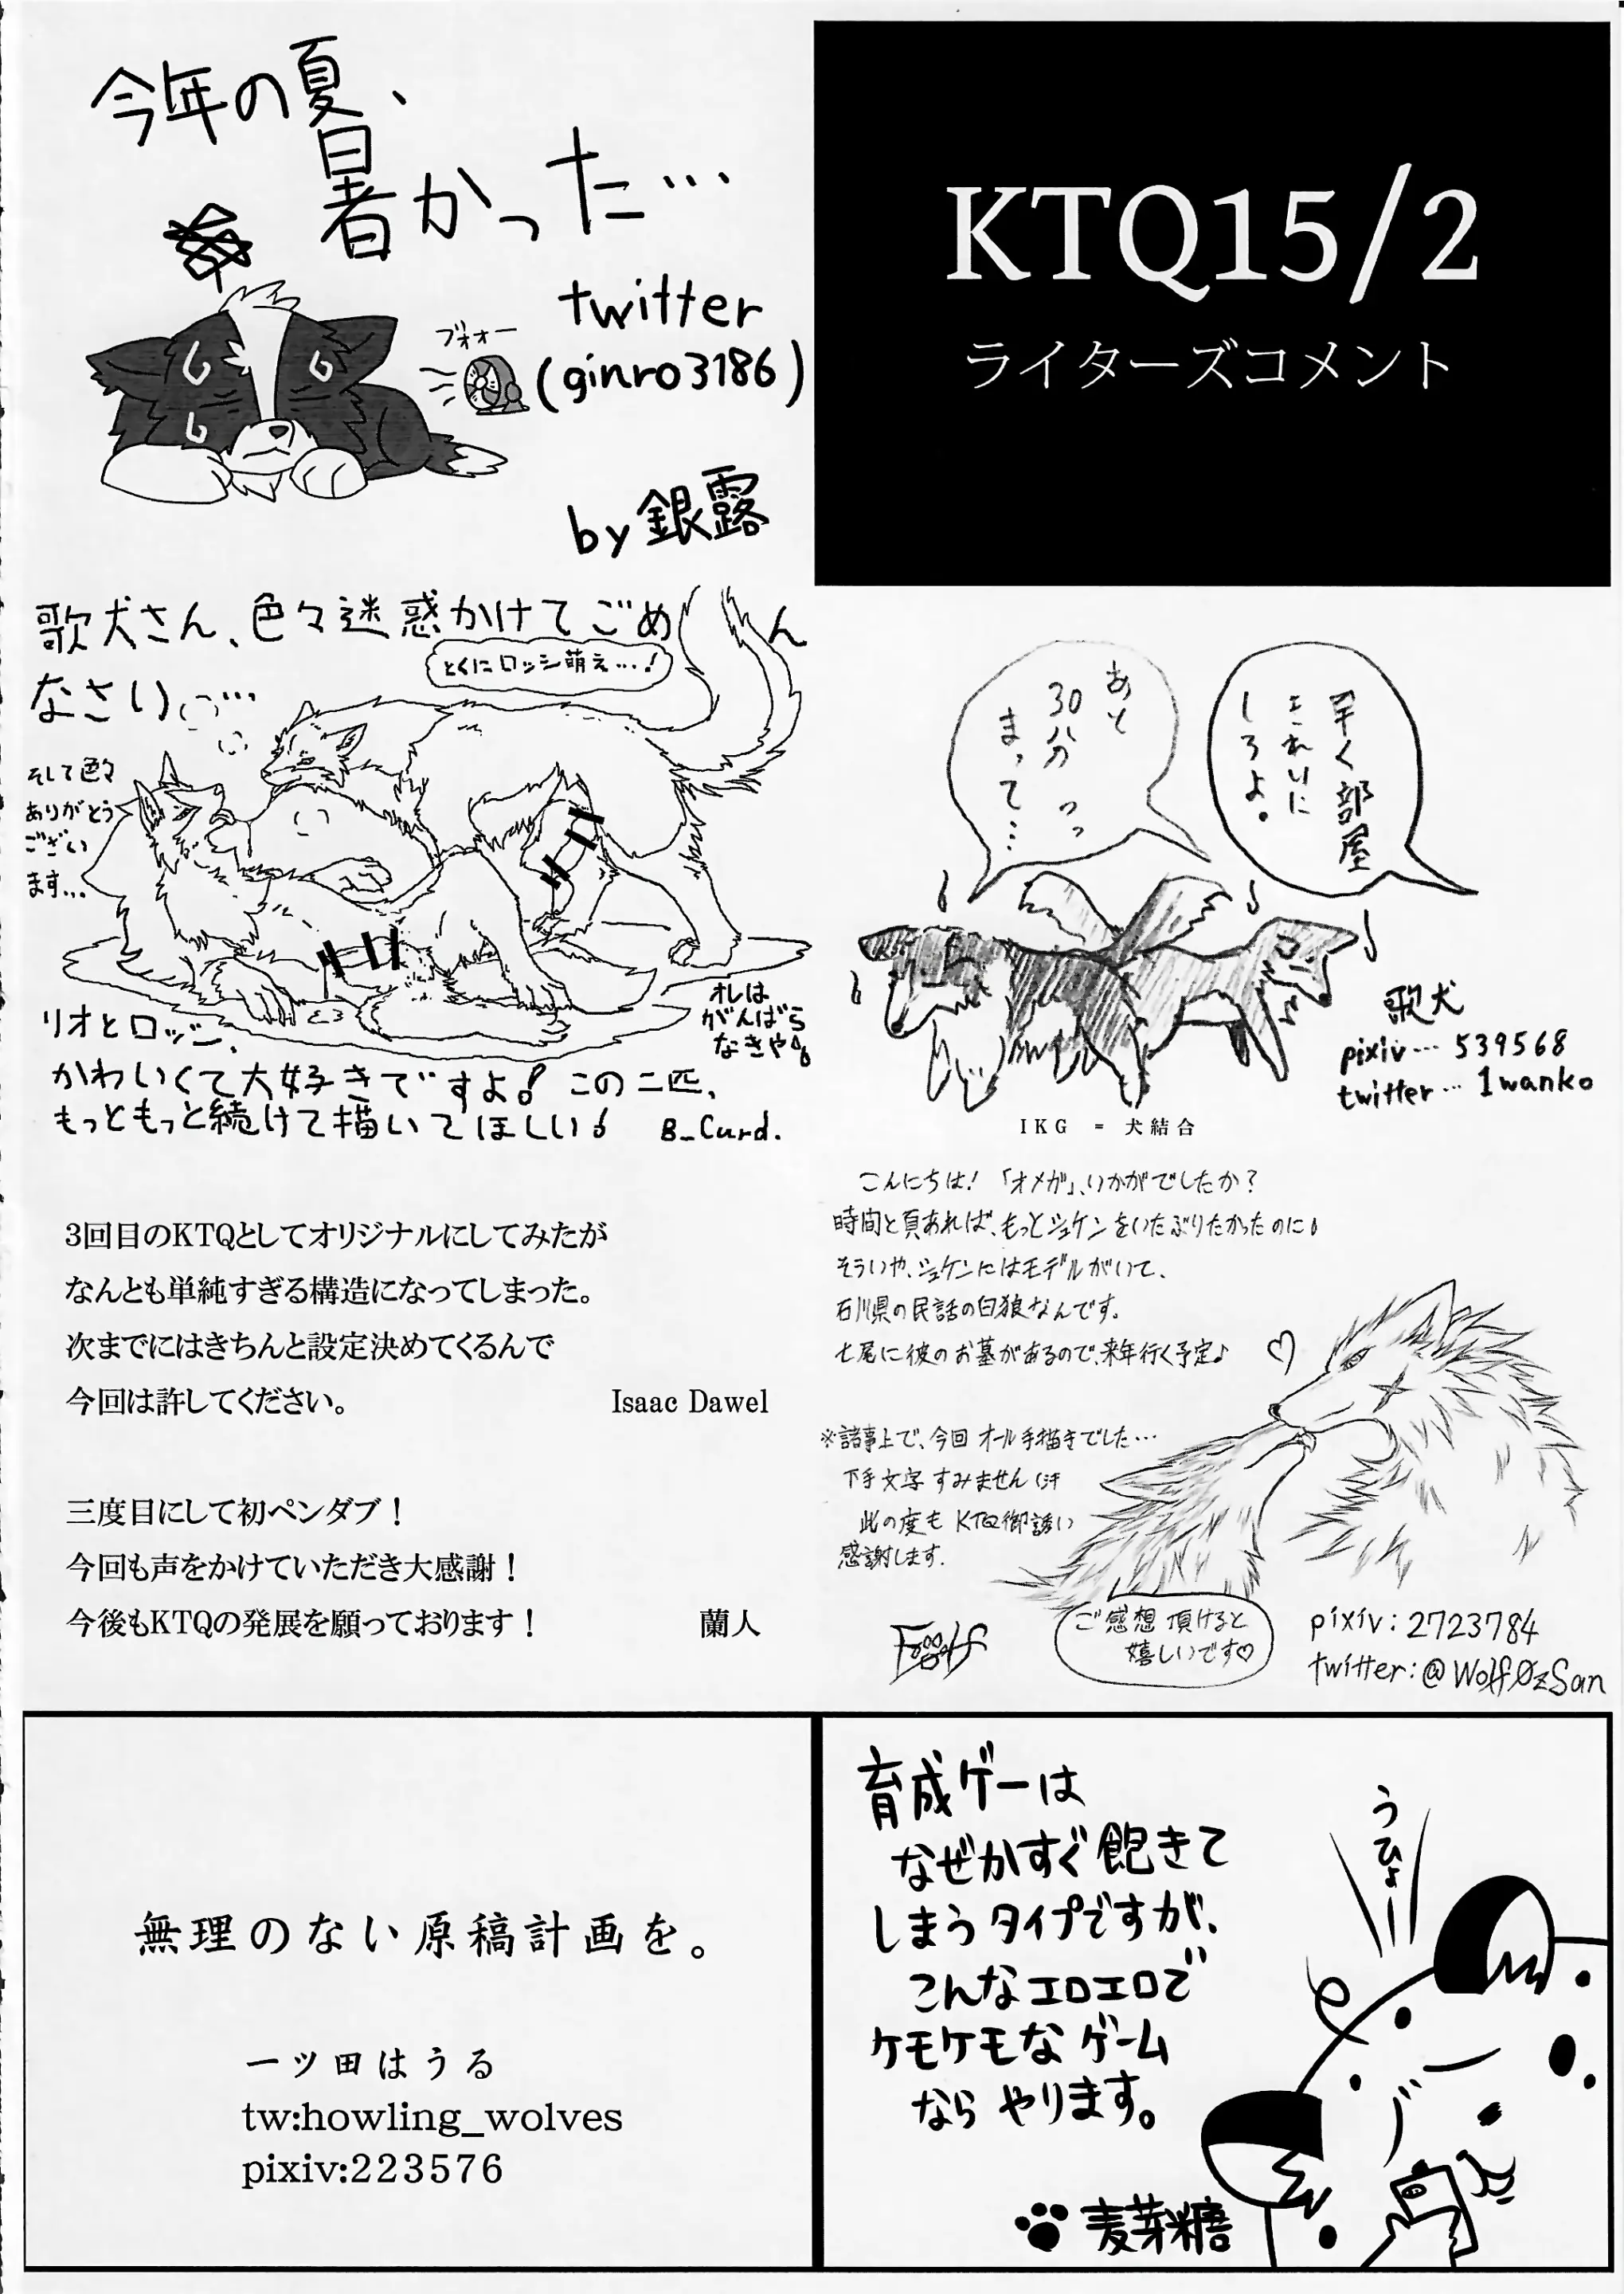 KTQ15/2
ライターズコメント
今年の夏、
暑かった…
ブォォー
twitter
(ginro3186)
by銀露
歌犬さん、色々迷惑かけてごめん
なさい…
とくにロッシ萌え…!
そして色々
ありがとう
ござい
ます…
オレは
がんばら
なきゃ
リオとロッシ、
かわいくて大好きですよ! この二匹、
もっともっと続けて描いてほしい! B_Curd.
早く部屋
きれいに
しろよ。
あと
30分
まって…
歌犬
pixiv… 539568
twitter… 1wanko
IKG = 犬結合
3回目のKTQとしてオリジナルにしてみたが
なんとも単純すぎる構造になってしまった。
次までにはきちんと設定決めてくるんで
今回は許してください。 Isaac Dawel
三度目にして初ペンダブ!
今回も声をかけていただき大感謝!
今後もKTQの発展を願っております! 蘭人
こんにちは! 「オメガ」、いかがでしたか?
時間と頁あれば、もっとジュケンをいたぶりたかったのに
そういや、ジュケンにはモデルがいて、
石川県の民話の白狼なんです。
七尾に彼のお墓があるので、来年行く予定♪
※諸事上で、今回 オール手描きでした…
下手文字 すみません(汗
此の度も KTQ御誘い
感謝します.
ご感想 頂けると
嬉しいです♡
pixiv: 2723784
twitter:@WolfØzSan
無理のない原稿計画を。
一ツ田はうる
tw:howling_wolves
pixiv:223576
育成ゲーは
なぜかすぐ飽きて
しまうタイプですが、
こんなエロエロで
ケモケモなゲーム
なら やります。
うひょー
麦芽糖